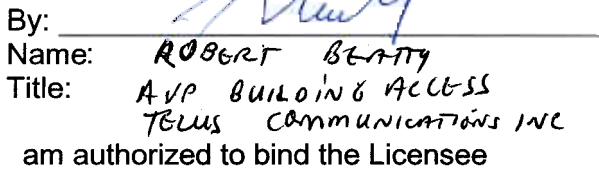 By:
Name: ROBERT BEATTY
Title: AVP BUILDING ACCESS
TELUS COMMUNICATIONS INC
am authorized to bind the Licensee